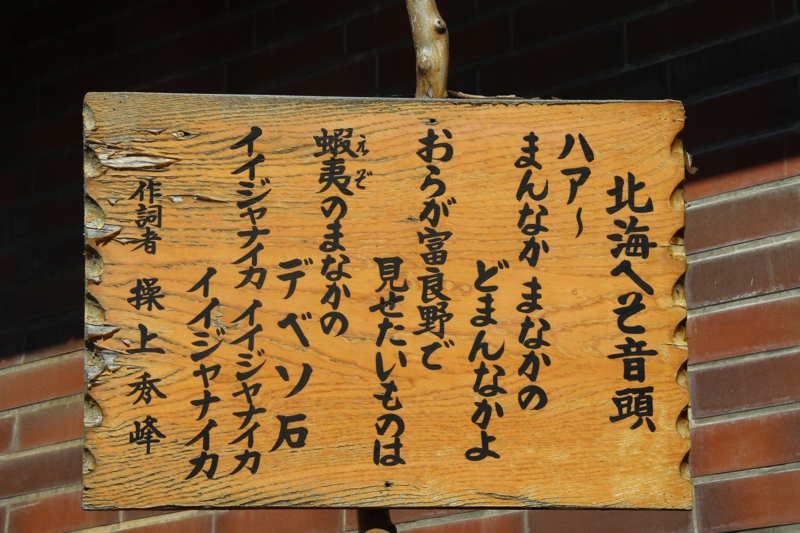 北海へそ音頭
ハア～
まんなか まなかの
どまんなかよ
おらが富良野で
見せたいものは
蝦夷のまなかの
えぞ
デベソ石
イイジャナイカ イイジャナイカ
イイジャナイカ
作詞者 操上秀峰